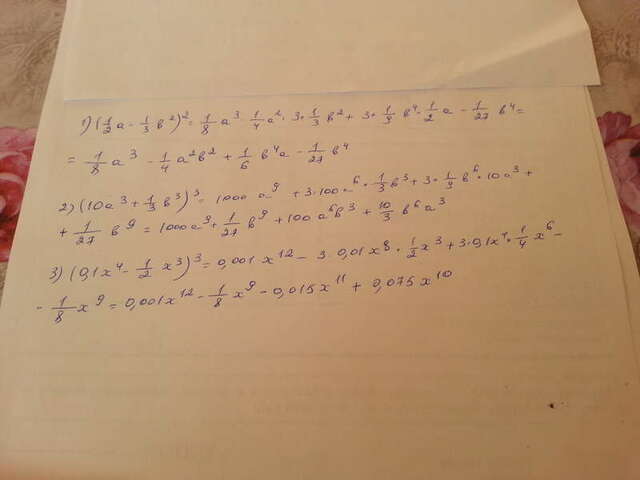 1) (1/2 a - 1/3 в²)² = 1/8 a³ - 1/4 a² · 3 · 1/3 в² + 3 · 1/9 в⁴ · 1/2 a - 1/27 в⁴ =
= 1/8 a³ - 1/4 a² в² + 1/6 в⁴ a - 1/27 в⁴
2) (10a³ + 1/3 в³)³ = 1000 a⁹ + 3 · 100 a⁶ · 1/3 в³ + 3 · 1/9 в⁶ · 10a³ +
+ 1/27 в⁹ = 1000a⁹ + 1/27 в⁹ + 100 a⁶ в³ + 10/3 в⁶ a³
3) (0,1x⁴ - 1/2 x³)³ = 0,001 x¹² - 3 · 0,01x⁸ · 1/2 x³ + 3 · 0,1x⁴ · 1/4 x⁶ -
- 1/8 x⁹ = 0,001x¹² - 1/8 x⁹ - 0,015 x¹¹ + 0,075 x¹⁰